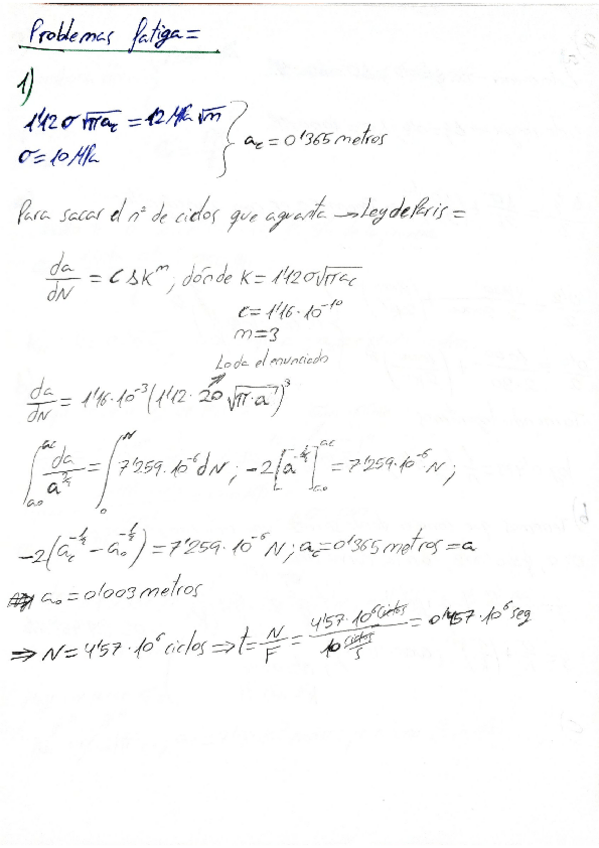 Problemas fatiga=
1)
1'12σ√πac = 12 MPa √m
σ=10 MPa
ac = 0'365 metros
Para sacar el nº de ciclos que aguanta → Ley de Paris =
da/dN = C ΔK^m, dónde K = 1'12σ√πac
C = 1'16·10^-10
m=3
Lo da el enunciado
da/dN = 1'16·10^-3 (1'12·20 √π·a)^3
∫ac a0 da/a^(3/2) = ∫N 0 7'259·10^-6 dN; -2[a^(-1/2)]ac a0 = 7'259·10^-6 N;
-2(ac^(-1/2) - a0^(-1/2)) = 7'259·10^-6 N; ac=0'365 metros = a
a0 = 0'003 metros
⇒ N = 4'57·10^6 ciclos ⇒ t = N/F = 4'57·10^6 ciclos / 10 ciclos/s = 0'457·10^6 seg